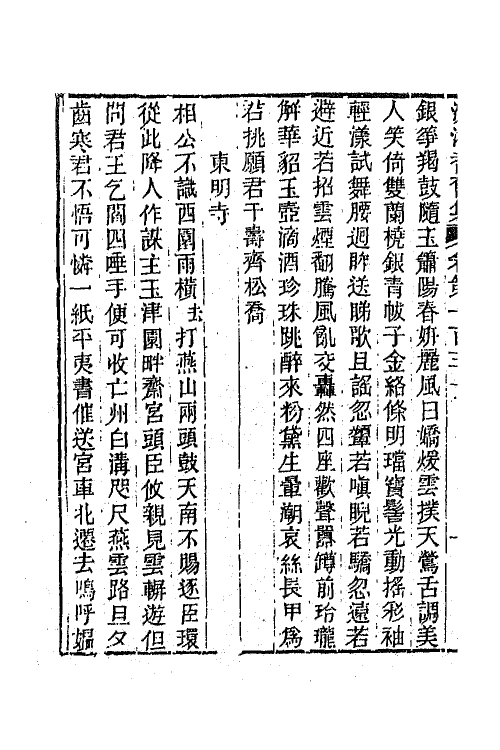 銀箏羯鼓隨玉簫陽春妍麗風日嬌煖雲撲天鶯舌調美
人笑倚雙蘭橈銀青帔子金絡條明璫寶髻光動搖彩袖
輕漾試舞腰迴眸送睇歌且謠忽顰若嗔睨若驕忽遠若
避近若招雲煙翻騰風亂交轟然四座歡聲囂罇前玲瓏
解華貂玉壺滴酒珍珠跳醉來粉黛生暈潮哀絲長甲為
君挑願君千壽齊松喬
東明寺
相公不識西園雨橫去打燕山兩頭鼓天南不賜逐臣環
從此降人作謀主玉津園畔齋宮頭臣攸親見雲輧遊但
問君王乞閻四唾手便可收亡州白溝咫尺燕雲路旦夕
齒寒君不悟可憐一紙平夷書催送宮車北遷去嗚呼嫗